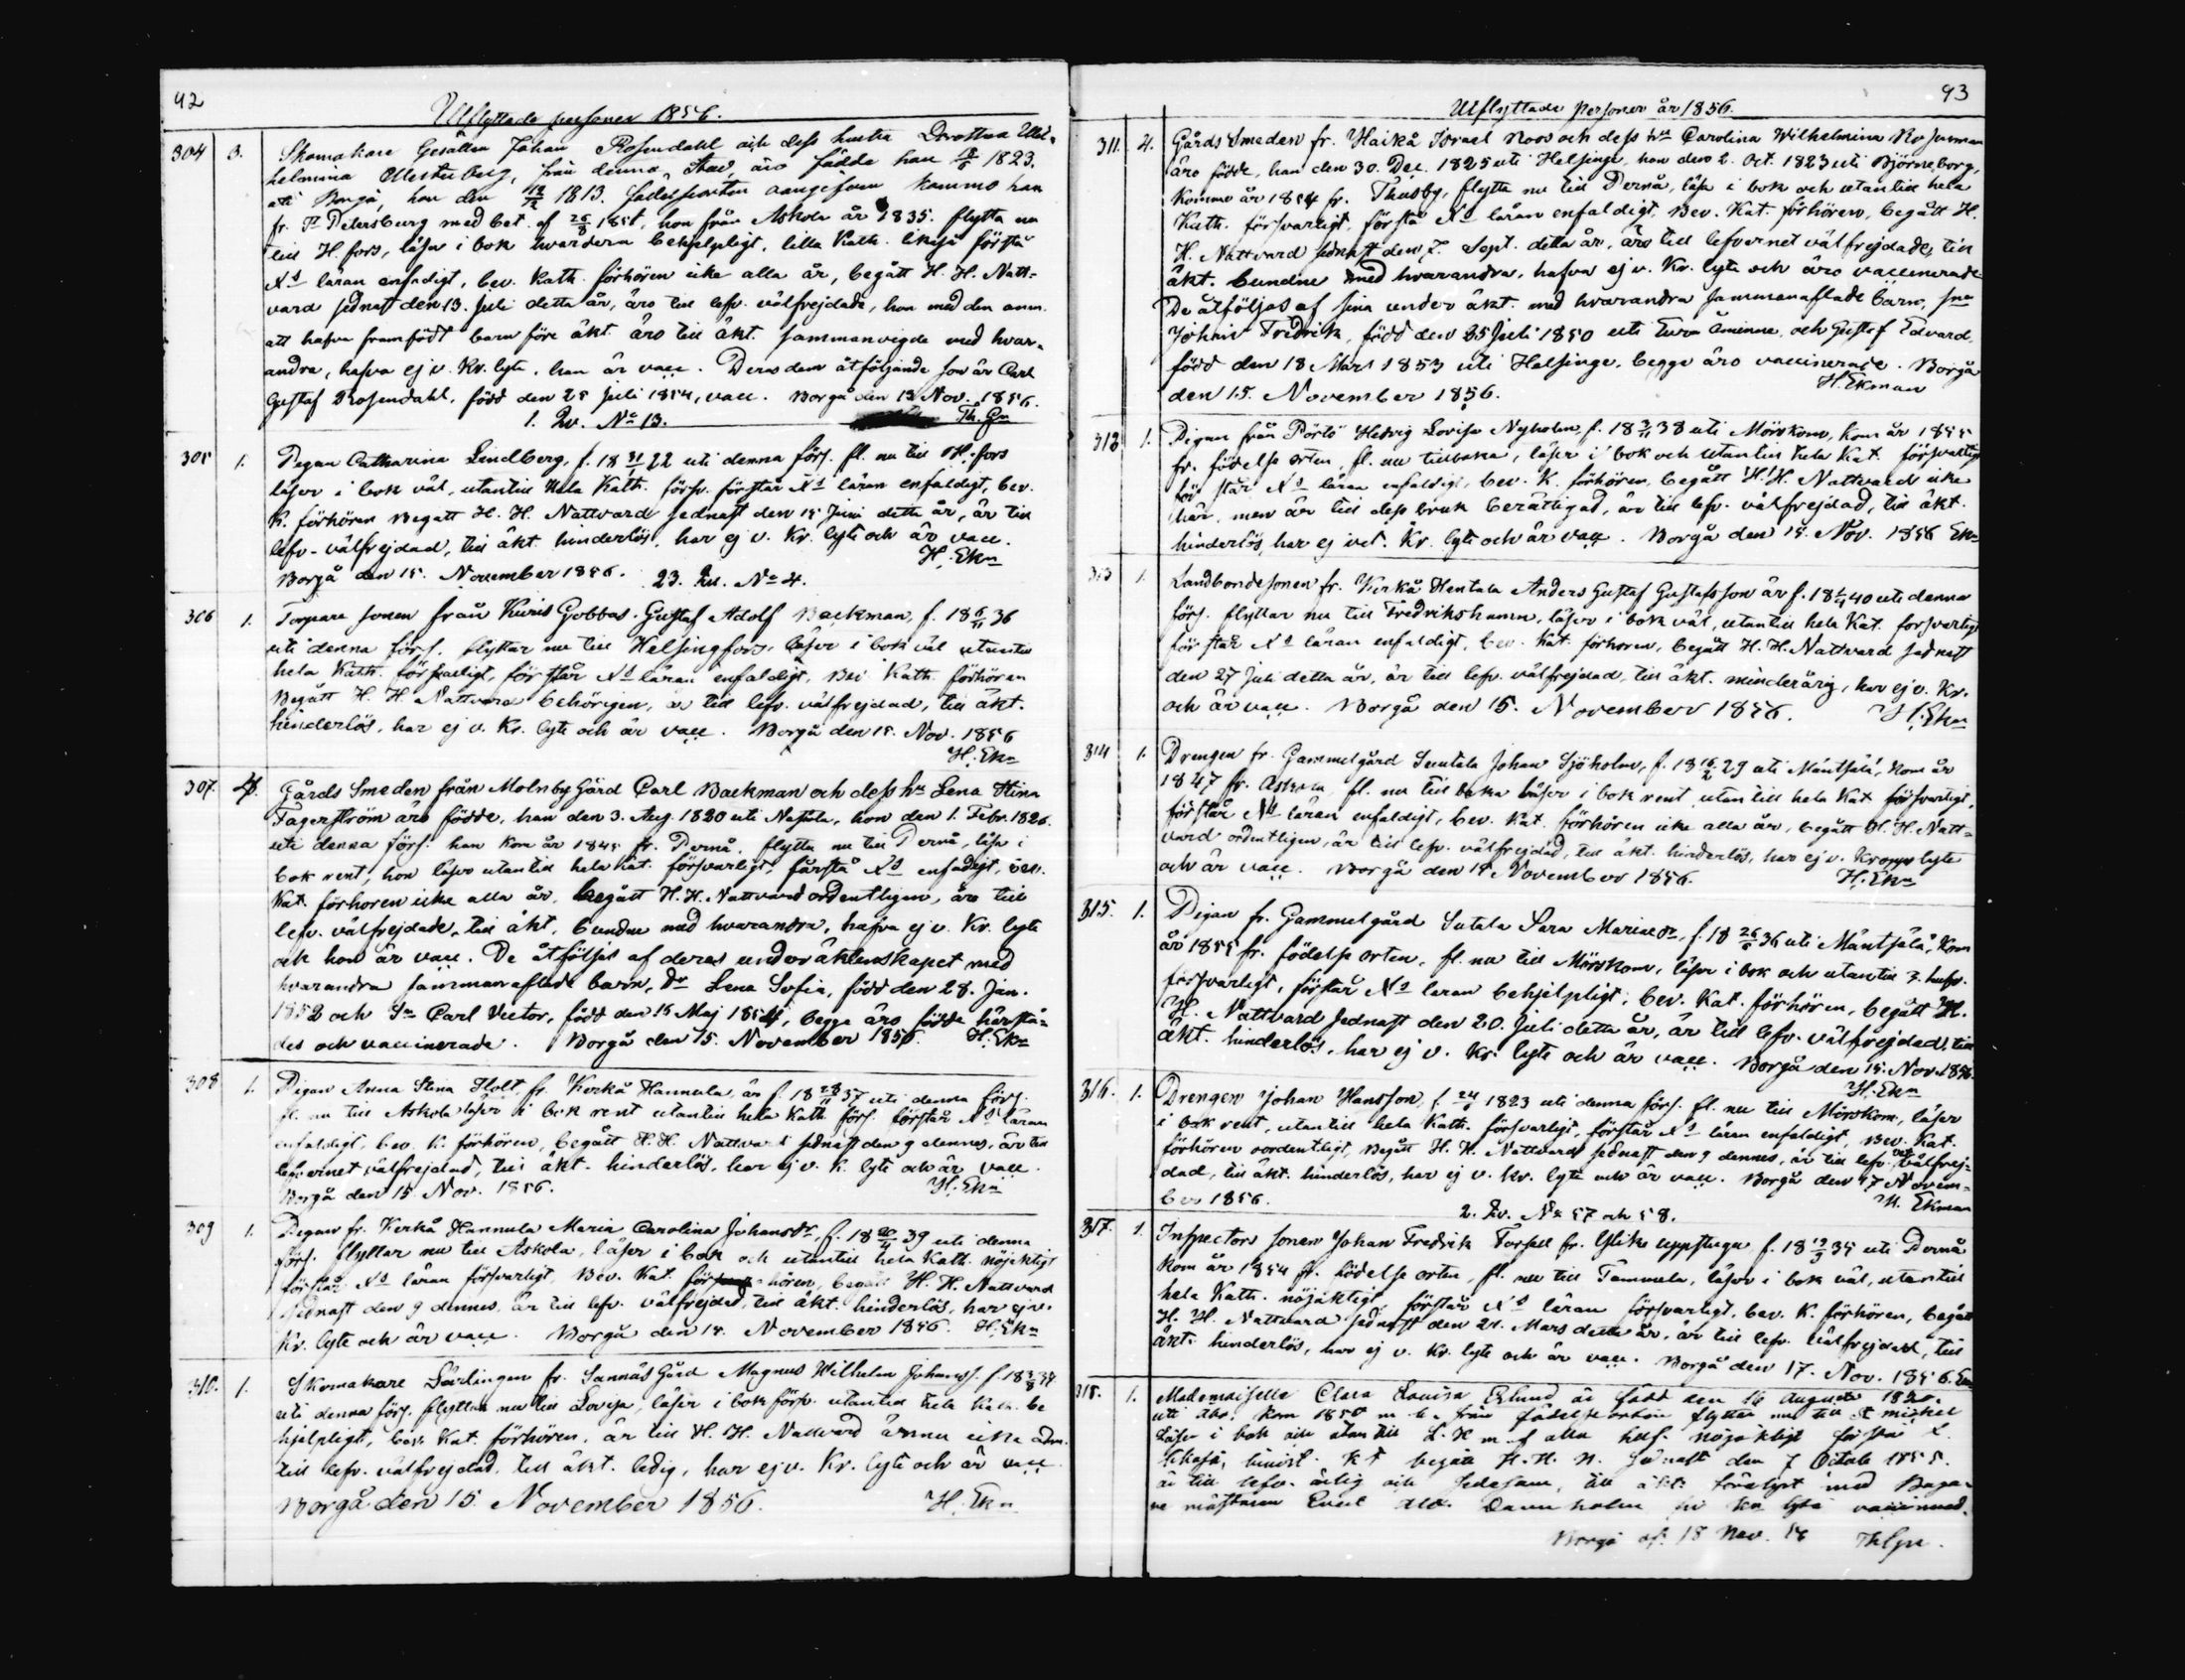 92
Utflyttade personer 1856.
304 3. Skomakare Gesällen Johan Rosendahl och dess hustru Drothea Wil-
helmina Westerberg, från denna Stad, äro födde han 1823.
uti Borgå, hon den 1813. kommo han
fr. St Petersburg med bet. af 26/8 185, hon från Askola år 1835. flytta nu
till H. fors, läsa i bok hvardera behjelpligt, lilla Kath. likaså förstå
Xs läran enfadigt, bev. Kath. förhören icke alla år, begått H. H. Natt-
vard sednast den 13. Juli detta år, äro till lefv. välfrejdade, hon med den anm.
att hafva framfödt barn före äkt. äro till äkt. sammanvigde med hvar-
andra, hafva ej v. Kr. lyte, han är vacc. Deras dem åtföljande son är Carl
Gustaf Rosendahl, född den 25 Juli 1854, vacc. Borgå den 13 Nov. 1856.
1. Qv. No 13. Th. Gn
305 1. Pigan Catharina Lindberg, f. 18 31/1 22 uti denna förs. fl. nu till H.fors
läser i bok väl, utantill hela Kath. försv. förstår Xs läran enfaldigt, bev.
K. förhören Begått H. H. Nattvard sednast den 15 Juni detta år, är till
lefv. välfrejdad, till äkt. hinderlös, har ej v. Kr. lyte och är vacc.
Borgå den 15. November 1856. 23. Qu. No 4. H. Ekn
306 1. Torpare sonen från Kuris Gobbas Gustaf Adolf Backman, f. 18 6/11 36
uti denna förs. flyttar nu till Helsingfors, läser i bok väl utantill
hela Kath. försvarligt, förstår Xs läran enfaldigt, Bev Kath. förhören
Begått H. H. Nattvard behörigen, är till lefv. välfrejdad, till äkt.
hinderlös, har ej v. Kr. lyte och är vacc. Borgå den 15. Nov. 1856
H. Ekn
307. 4. Gårds Smeden från Molnby Gård Carl Backman och dess hu Lena Stina
Fagerström äro födde, han den 3. Aug. 1820 uti, hon den 1. Febr. 1826.
uti denna förs. han kom år 1845 fr. Pernå. flytta nu till Pernå, läsa i
bok rent, hon läser utantill hela Kat. försvarligt, förstå Xs enfadigt, bev.
Kat. förhören icke alla år, begått H. H. Nattvard ordentligen, äro till
lefv. välfrejdade, till äkt. bundne med hvarandra, hafva ej v. Kr. lyte
och hon är vacc. De åtföljas af deras under äktenskapet med
hvarandra sammanaflade barn, Dr Lena Sofia, född den 28. Jan.
1852 och Sn Carl Victor, född den 15 Maj 1854, begge äro födde härstä-
des och vaccinerade. Borgå den 15. November 1856. H. Ekn
308 1. Pigan Anna Stina Holt fr. Kerkå Hannula, är f. 18 28/11 37 uti denna förs.
fl. nu till Askola läser i bok rent utantill hela Kath. förs. förstår Xs läran
enfaldigt, bev. K. förhören, begått H. H. Nattvard sednast den 9 dennes, är till
lefvernet välfrejdad, till äkt. hinderlös, har ej v. K. lyte och är vacc.
Borgå den 15. Nov. 1856. H. Ekn
309 1. Pigan fr. Kerkå Hannula Maria Carolina Johansdr, f. 18 20/4 39 uti denna
förs. flyttar nu till Askola, läser i bok och utantill hela Kath. nöjaktigt
förstår Xs läran försvarligt, Bev. Kat. förhören, begått H. H. Nattvard
sednast den 9 dennes, är till lefv. välfrejdad, till äkt. hinderlös, har ej v.
Kr. lyte och är vacc. Borgå den 15. November 1856. H. Ekn
310. 1. Skomakare Lärlingen fr. Sannäs Gård Magnus Wilhelm Johanss. f. 18 3/8 34
uti denna förs. flyttar nu till Lovisa, läser i bok försv. utantill hela Kath. be
hjelpligt, bev. Kat. förhören, är till H. H. Nattvard ännu icke adm.
till lefv. välfrejdad, till äkt. ledig, har ej v. Kr. lyte och är vacc
Borgå den 15. November 1856. H. Ekn
93
Utflyttade Personer år 1856.
311. 4. Gårds Smeden fr. Haikå Israel Roos och dess hu Carolina Wilhelmina
äro födde, han den 30. Dec. 1825 uti Helsinge, hon den 2. Oct. 1823 uti Björneborg,
komme år 1854 fr. Thusby, flytta nu till Pernå, läsa i bok och utantill hela
Kath. försvarligt, förstå Xs läran enfaldigt, Bev. Kat. förhören, begått H.
H. Nattvard sednast den 7. Sept. detta år, äro till lefvernet välfrejdade, till
äkt. bundne med hvarandra, hafva ej v. Kr. lyte och äro vaccinerade
De åtföljas af sina under äkt. med hvarandra sammanaflade barn, sne
Johan Fredrik, född den 25 Juli 1850 uti Åminne och Gustaf Edvard,
född den 18 Mars 1853 uti Helsinge, begge äro vaccinerade. Borgå
den 15. November 1856. H. Ekman
312 1. Pigan från Pörtö Hedvig Lovisa Nyholm, f. 18 3/11 38 uti Mörskom, kom år 1855
fr. födelse orten, fl. nu tillbaka, läser i bok och utantill hela Kat. försvarligt
förstår Xs läran enfaldigt, bev. K. förhören, begått H. H. Nattvard icke
här, men är till dess bruk berättigad, är till lefv. välfrejdad, till äkt.
hinderlös, har ej vet. Kr. lyte och är vacc. Borgå den 15. Nov. 1856 Ekn
313 1. Landbondesonen fr. Kerkå Hentala Anders Gustaf Gustafsson är f. 18 40 uti denna
förs. flyttar nu till Fredrikshamn, läser i bok väl, utantill hela Kat. försvarligt
förstår Xs läran enfaldigt, bev. Kat. förhören, begått H. H. Nattvard sednast
den 27 Juli detta år, är till lefv. välfrejdad, till äkt. minderårig, har ej v. Kr.
och är vacc. Borgå den 15. November 1856. H. Ekn
314 1. Drengen fr. Gammelgård Johan Sjöholm, f. 18 29 uti Mäntsälä, kom år
1847 fr. Askola, fl. nu till baka läser i bok rent, utantill hela Kat. försvarligt,
förstår Xs läran enfaldigt, bev. Kat. förhören icke alla år, begått H. H. Natt-
vard ordentligen, är till lefv. välfrejdad, till äkt. hinderlös, har ej v. Kropps lyte
och är vacc. Borgå den 15 November 1856. H. Ekn
315. 1. Pigan fr. Gammelgård Sutala Sara Mariaedr, f. 18 36 uti Mäntsälä, kom
år 1855 fr. födelse orten, fl. nu till Mörskom, läser i bok och utantill 3. hufv.
försvarligt, förstår Xs läran behjelpligt, bev. Kat. förhören, begått H.
H. Nattvard sednast den 20. Juli detta år, är till lefv. välfrejdad, till
äkt. hinderlös, har ej v. Kr. lyte och är vacc. Borgå den 15. Nov. 1856.
H. Ekn
316. 1. Drengen Johan Hansson, f. 1823 uti denna förs. fl. nu till Mörskom, läser
i bok rent, utantill hela Kath. försvarligt, förstår Xs läran enfaldigt, Bev. Kat.
förhören oordentligt, Begått H. H. Nattvard sednast den 9 dennes, är till lefv. välfrej-
dad, till äkt. hinderlös, har ej v. Kr. lyte och är vacc. Borgå den 17 Novem-
ber 1856. H. Ekman
2. Qv. No 57 och 58.
317. 1. Inspectors sonen Johan Fredrik Forsell fr. Ylike uppstuga f. 18 35 uti Pernå
kom år 1854 fr. födelse orten, fl. nu till Tammela, läser i bok väl, utantill
hela Kath. nöjaktigt, förstår Xs läran försvarligt, bev. K. förhören, begått
H. H. Nattvard sednast den 21. Mars detta år, är till lefv. välfrejdad, till
äkt. hinderlös, har ej v. Kr. lyte och är vacc. Borgå den 17. Nov. 1856. Ekn
318. 1. Mademoiselle Clara Lovisa Eklund är född den 16 Augusti 1820
uti Åbo, kom 1850 m. b. från födelseorten flyttar nu till St Michel
Läser i bok och utantill L. K m. f alla hufs. nöjaktigt förstår X.
likaså, begått H. H. N. sednast den 7 October 1855.
är till lefv. ärlig och sedesam, till äkt. förelyst med Baga-
re mästaren Emil Alex. Dannholm kr lyte vaccinerad.
Borgå af. 18 Nov. 56 Th Gn.